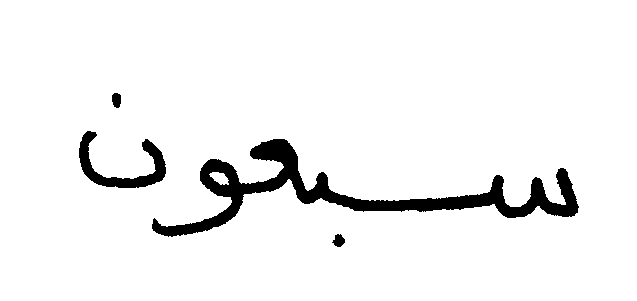 سبعون